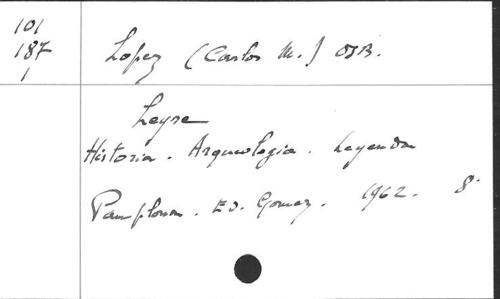 101
187
1
Lopez (Carlos M.) OSB.
Leyre
Historia. Arqueologia. Leyenda
Pamplona. Ed. Gomez. 1962. 8º